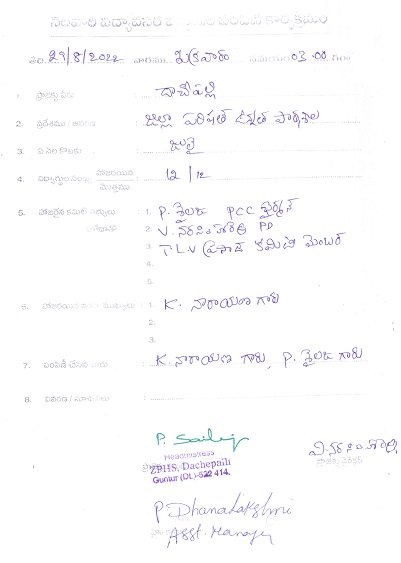 నెలవారి విద్యావనర పంపిణీ కార్యక్రమం
తేది. 29/8/2022 వారము శుక్రవారం సమయం 03.00 గం॥
1. ప్రాజెక్టు పేరు : దాచేపల్లి
2. ప్రదేశము : జిల్లా పరిషత్ ఉన్నత పాఠశాల
3. ఏ నెల కొరకు : జులై
4. విద్యార్థుల సంఖ్య హాజరయిన మొత్తము : 12/12
5. హాజరైన కమిటి సభ్యులు : 1. P. శైలజ PCC చైర్మన్
2. V. నరసింహారెడ్డి PD
3. T.L.V ప్రసాద్ కమిటి మెంబర్
4.
5.
6. హాజరయిన ముఖ్యులు : 1. K. నారాయణ గారు
2.
3.
7. పంపిణీ చేసిన వారు : K. నారాయణ గారు, P. శైలజ గారు
8. వివరణ / సూచనలు :
P. Sailaja
Headmistress
ZPHS, Dachepalli
Guntur (Dt.)-522 414.
వి. నరసింహారెడ్డి
ప్రాజెక్టు డైరెక్టర్
P Dhanalakshmi
Asst. Manager